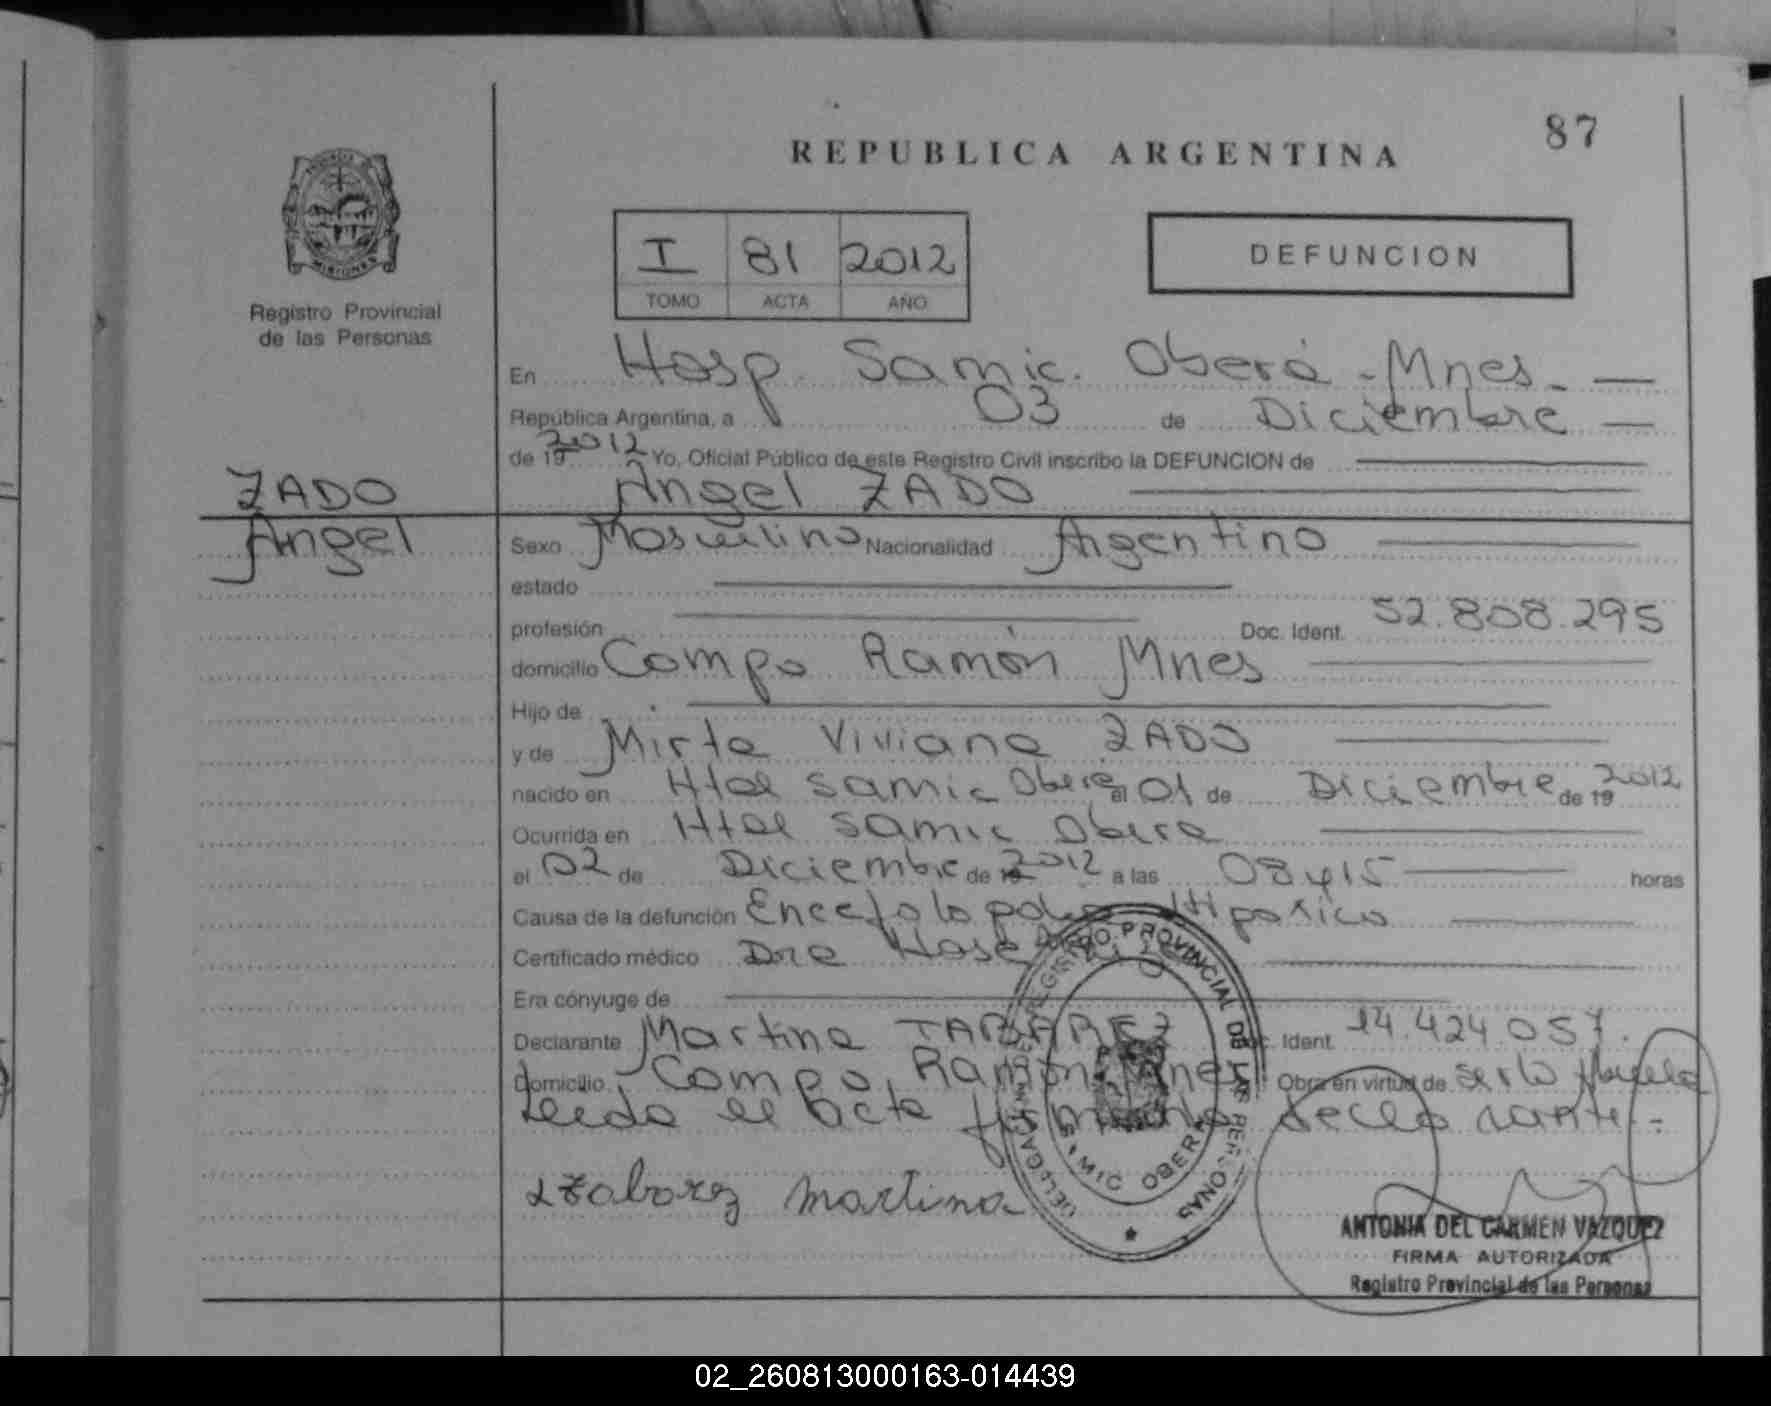 87
REPUBLICA ARGENTINA
PROVINCIA DE MISIONES
Registro Provincial
de las Personas
I 81 2012
TOMO ACTA AÑO
DEFUNCION
En Hosp. Samic. Oberá - Mnes.
República Argentina, a 03 de Diciembre
de 19 2012 Yo, Oficial Público de este Registro Civil inscribo la DEFUNCION de
ZADO Angel ZADO
Angel Sexo Masculino Nacionalidad Argentino
estado
profesión Doc. Ident. 52.808.295
domicilio Campo Ramón Mnes
Hijo de
y de Mirta Viviana ZADO
nacido en Htal Samic Obera el 01 de Diciembre de 19 2012
Ocurrida en Htal Samic Obera
el 02 de Diciembre de 19 2012 a las 08 y 15 horas
Causa de la defunción Encefalopatia Hipoxica
Certificado médico Dra
Era cónyuge de
Declarante Martina TABAREZ Doc. Ident. 14.424.057.
Domicilio Campo Ramón Mnes Obra en virtud de ser la Abuela
Leida el acta firma la declarante.=
Martina
DELEGACION DE REGISTRO PROVINCIAL DE LAS PERSONAS
SAMIC OBERA
ANTONIA DEL CARMEN VAZQUEZ
FIRMA AUTORIZADA
Registro Provincial de las Personas
02_260813000163-014439